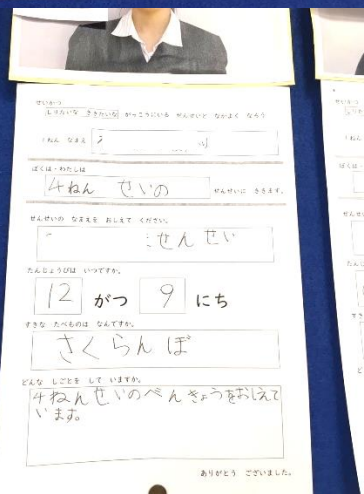 せいかつ
しりたいな ききたいな がっこうにいる せんせいと なかよく なろう
1ねん なまえ
ぼくは・わたしは
4ねん せいの せんせいに ききます。
せんせいの なまえを おしえて ください。
せんせい
たんじょうびは いつですか。
12 がつ 9 にち
すきな たべものは なんですか。
さくらんぼ
どんな しごとを して いますか。
4ねんせいのべんきょうをおしえて
います。
ありがとう ございました。